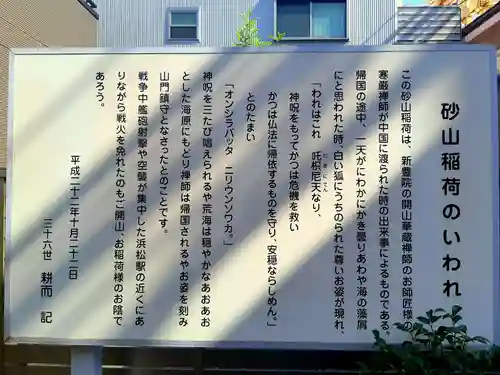 砂山稲荷のいわれ
この砂山稲荷は、新豊院の開山華蔵禅師のお師匠様の
寒巌禅師が中国に渡られた時の出来事によるものである。
帰国の途中、一天がにわかにかき曇りあわや海の藻屑
にと思われた時、白い狐にうちのられた尊いお姿が現れ、
「われはこれ 吒枳尼天なり、
だきにてん
神呪をもってかつは危機を救い
かつは仏法に帰依するものを守り、安穏ならしめん。」
とのたまい
「オンシラバッタ ニリウンソワカ。」
神呪を三たび唱えられるや荒海は穏やかなあおあお
とした海原にもどり禅師は帰国されるやお姿を刻み
山門鎮守となさったとのことです。
戦争中艦砲射撃や空襲が集中した浜松駅の近くにあ
りながら戦火を免れたのもご開山、お稲荷様のお陰で
あろう。
平成二十二年十月二十二日
三十六世 耕而 記